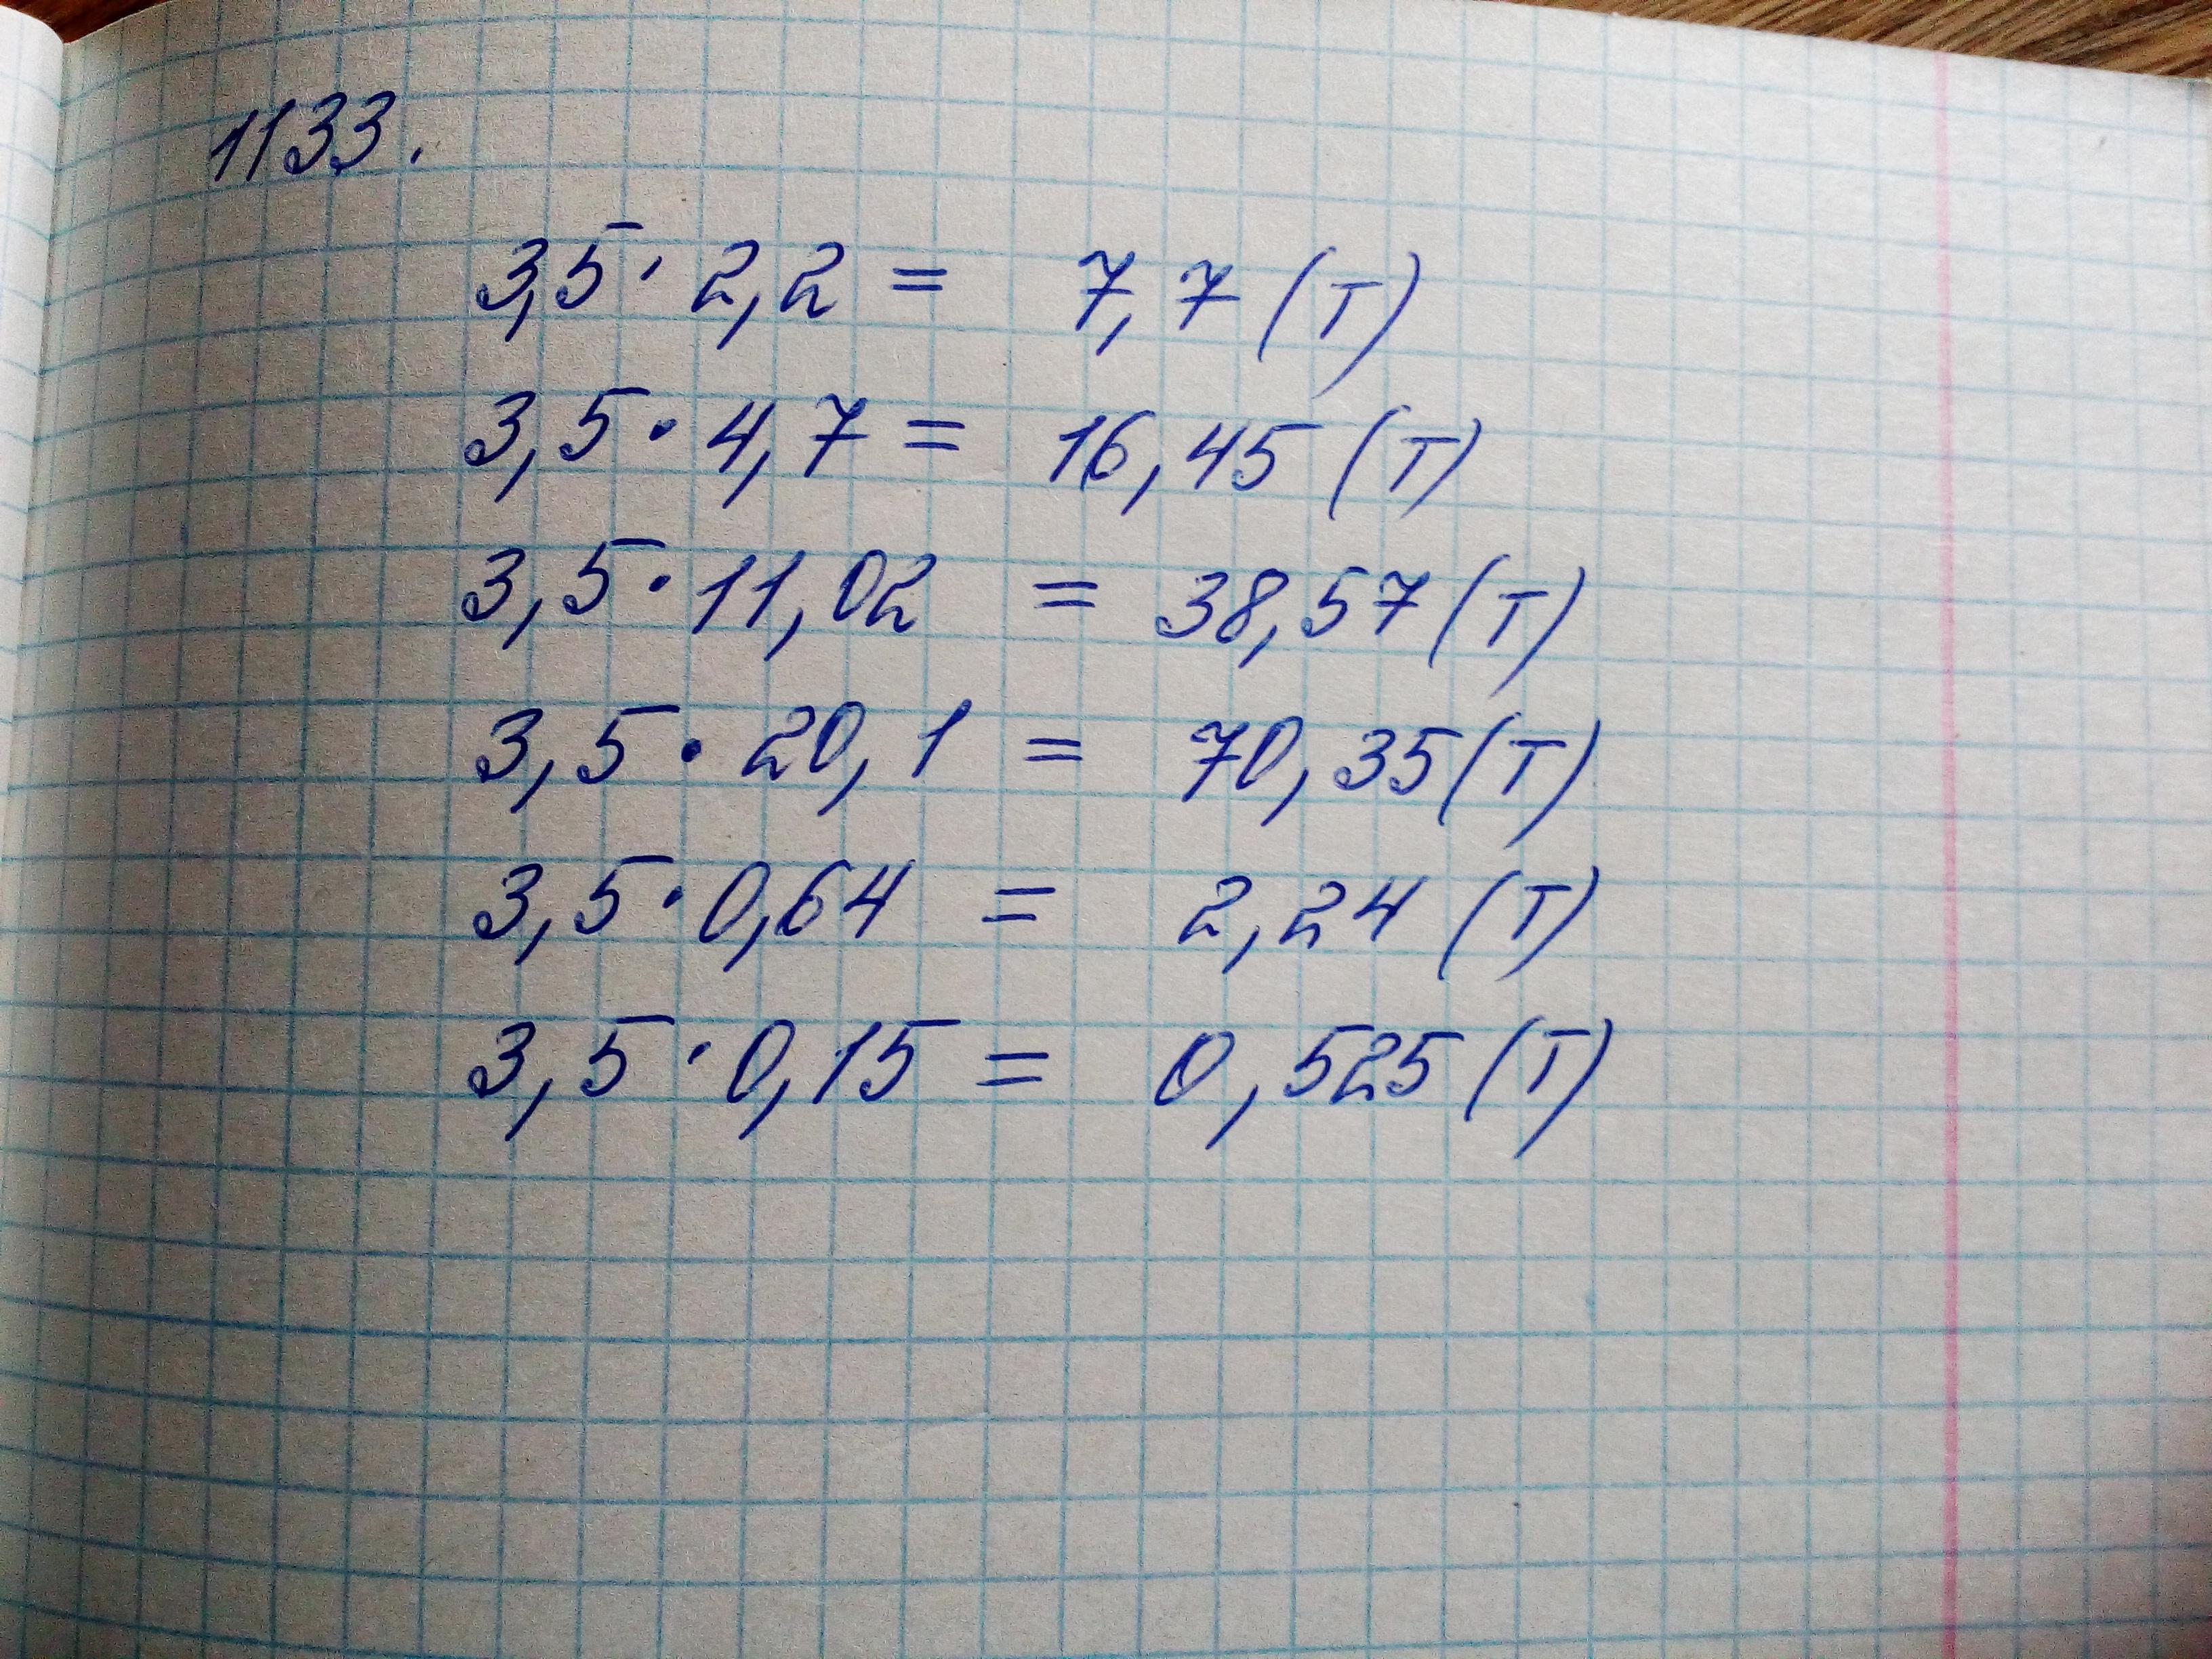 1133.
3,5 · 2,2 = 7,7 (т)
3,5 · 4,7 = 16,45 (т)
3,5 · 11,02 = 38,57 (т)
3,5 · 20,1 = 70,35 (т)
3,5 · 0,64 = 2,24 (т)
3,5 · 0,15 = 0,525 (т)